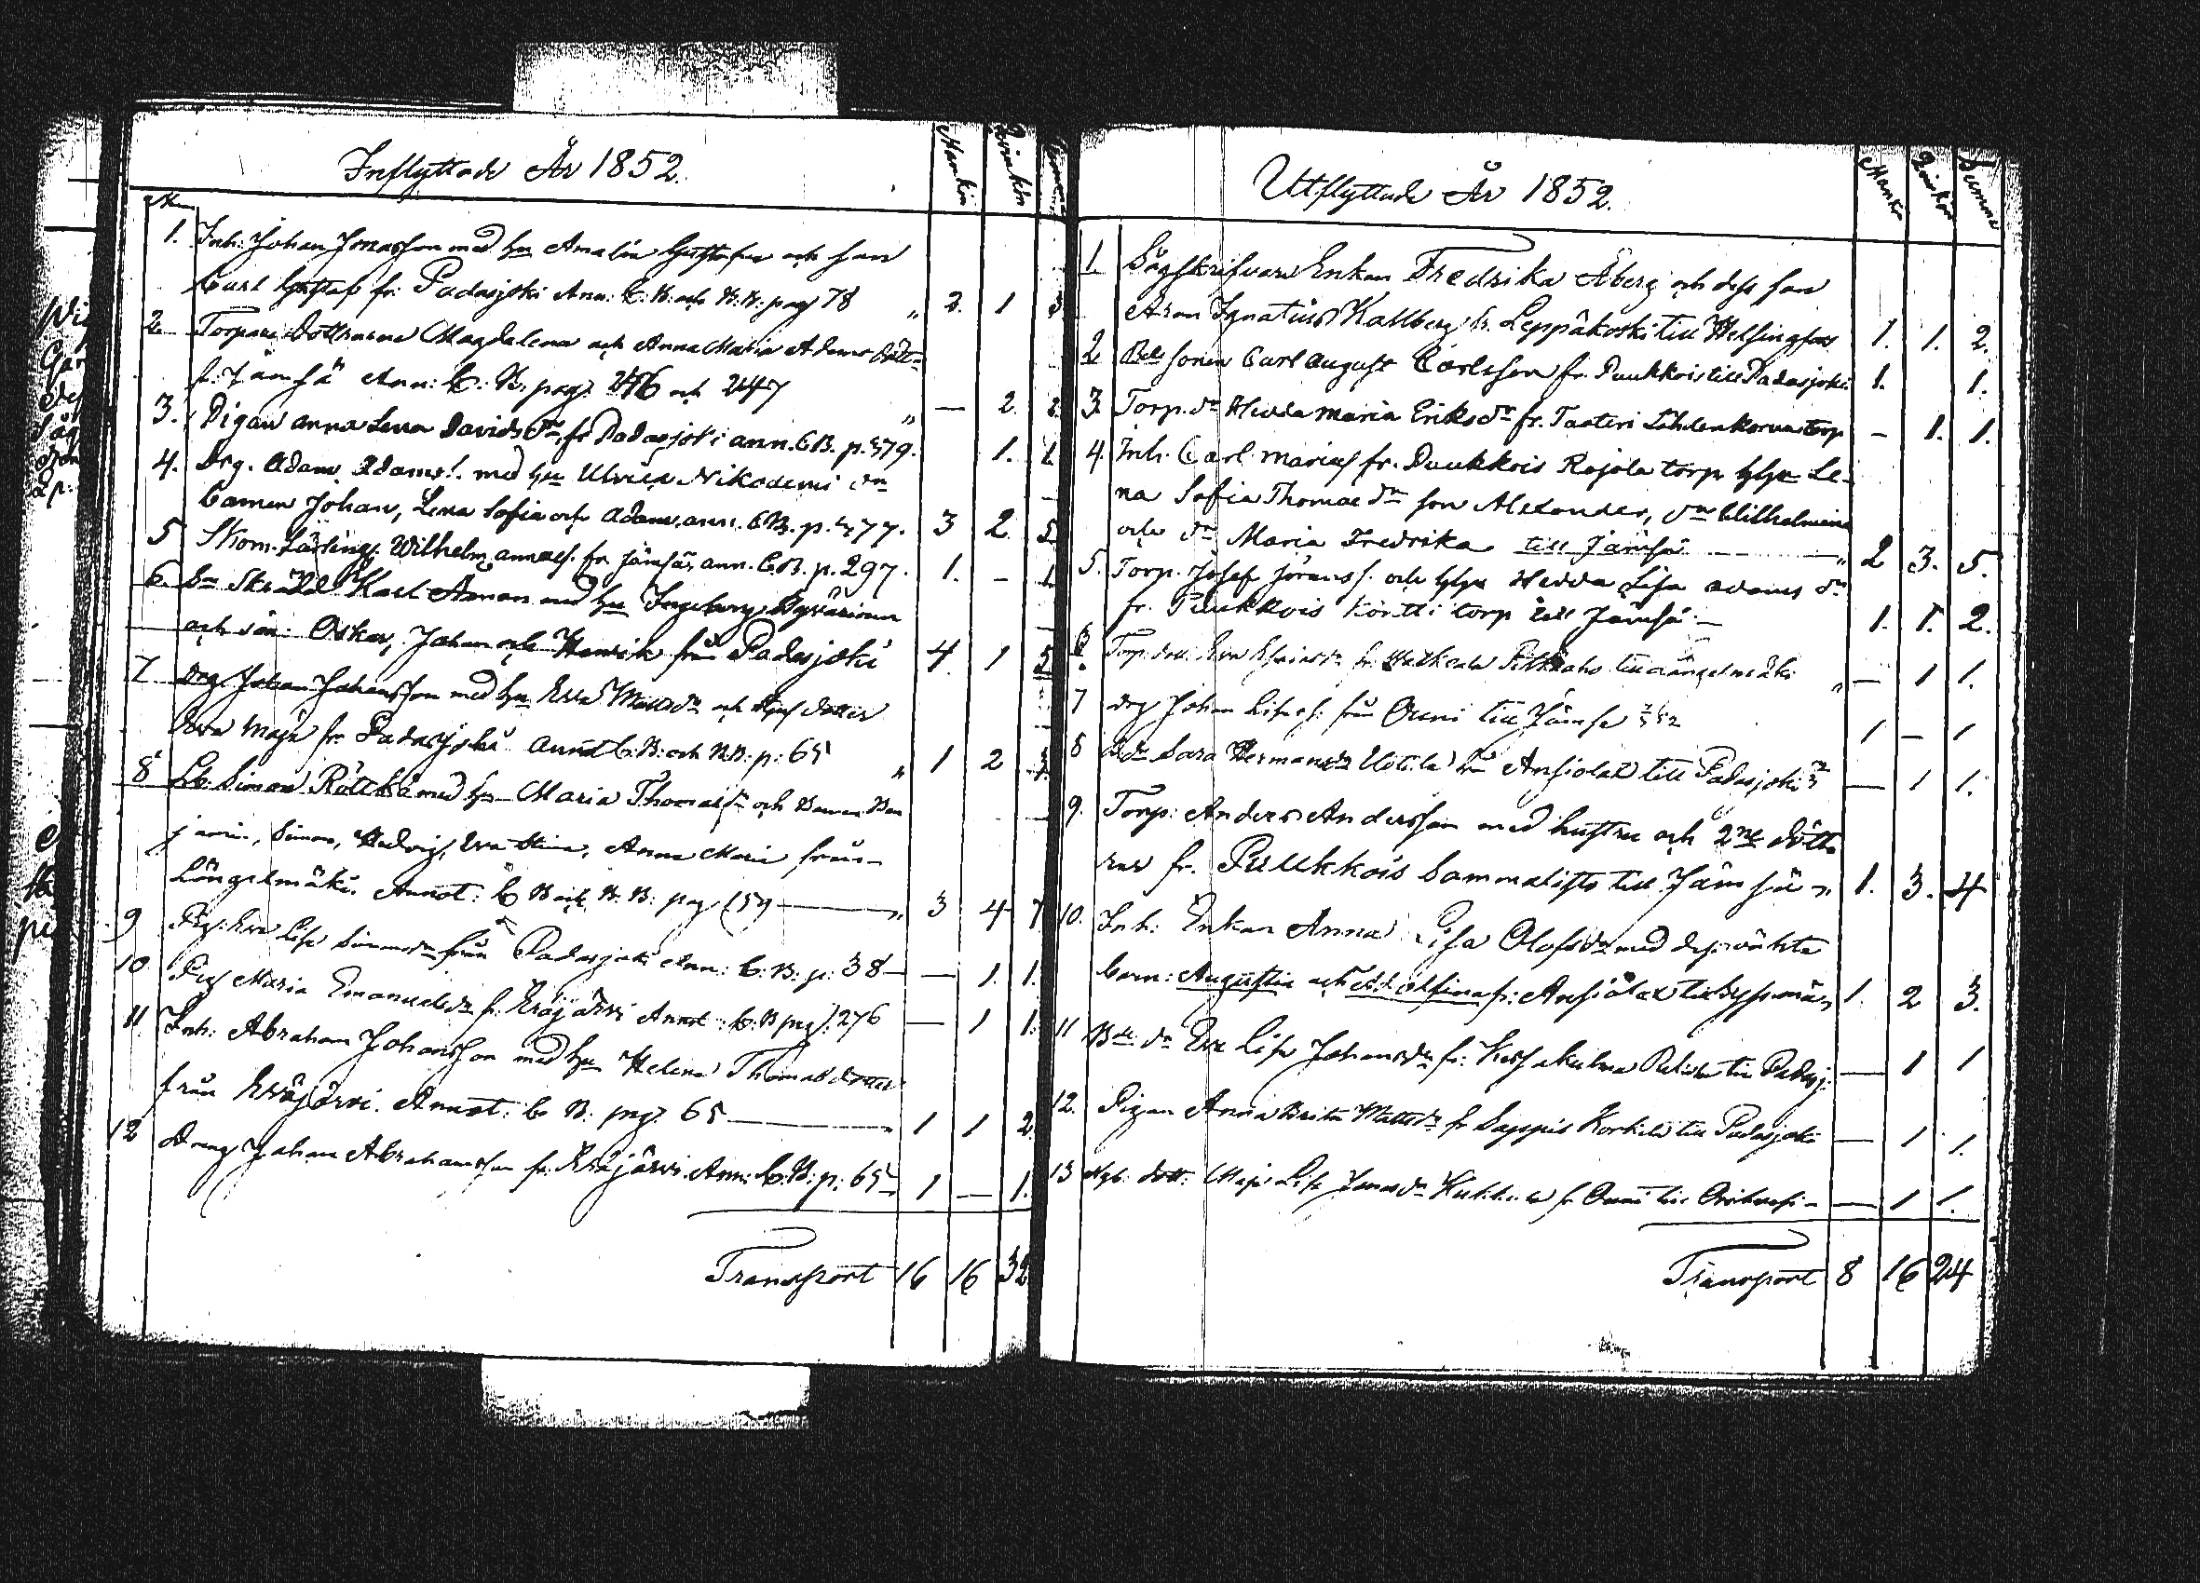 Inflyttade År 1852.
Mankön Qvinkön Summa
1. Inh: Johan Jonasson med hu Amalia Gustafva och son
Carl Gustaf fr. Padasjoki Ann: C: B: och N. B: pag 78 " 2. 1 3
2. Torpare Döttrarne Magdalena och Anna Maria Adams dött=
fr. Jämsä Ann: C: B: pag. 246 och 247 " — 2. 2.
3. Pigan Anna Lena Davids dr fr Padasjoki ann. C B. p. 479. 1. 1.
4. Drg. Adam Adams s. med hu Ulrica Nikodemi dr
barnen Johan, Lena Sofia och Adam, ann. C B. p. 477. 3 2. 5.
5 Skom. Lärling. Wilhelm fr Jämsä, ann. C. B. p. 297. 1. - 1.
6. Karl Åman med hu Ingeborg
och sön: Oskar, Johan och Henrik från Padasjoki 4 1 5
7 Drg Johan Johansson med hu Eva Matts dr och dotter
Eva Maja fr. Padasjoki C: B: och N.B: p: 65 " 1 2 3.
8 Simon med hu Maria Thomas dr och Barnen Ben
jamin, Simon, Hedvig, Eva Stina, Anna Maria från
Längelmäki Annot: C B och N. B: pag 159 — " 3 4 7
9 Pig: Eva Lisa Simons dr från Padasjoki Ann: C: B: p: 38 — — 1. 1.
10 Pig Maria Emanuels dr fr. Eräjärvi Annot: C: B pag: 276 — 1 1.
11 Inh: Abraham Johansson med hu Helena Thomas dotter
från Eräjärvi. Annot: C B: pag. 65 — " 1 1 2.
12 Dreng Johan Abrahamsson fr: Eräjärvi. Ann: C: B: p: 65 — 1 — 1.
Transport 16 16 32
Utflyttade År 1852.
Mankön Qvinkön Summa
1 Sågskrifvare Enkan Fredrika Åberg och dess son
Aron Ignatius Kallberg fr. Leppäkoski till Helsingfors 1. 1. 2.
2. Bde sonen Carl August Carlsson fr. Puukkois till Padasjoki 1. 1.
3. Torp. dr Hedda Maria Eriks dr fr. Taateri Lähdenkorva torp — 1. 1.
4. Inh. Carl fr. Puukkois Rajala torp hu Le-
na Sofia Thomae dr son Alexander, dr Wilhelmina
och dr Maria Fredrika till Jämsä " 2 3. 5.
5. Torp. Josef Görans s. och hu Hedda Lisa Adams dr
fr. Puukkois Körtti torp till Jämsä. — 1. 1. 2.
6 Torp. dott. Eva dr fr. till Längelmäki " — 1 1.
7 Drg Johan fr&aring;n Ouni till Jämsä 1 — 1
8 Bde Sara Hermans dr Uotila fr Ansiolax till Padasjoki — 1 1.
9. Torp: Anders Andersson med hustru och 2ne dött
rar fr. Puukkois Sammalisto till Jämsä " 1. 3. 4
10. Inh: Enkan Anna Lisa Olofs dr med dess oäkta
barn: Augusta och fr: Ansiolax till 1. 2 3.
11 Bde dr Eva Lisa Johans dr fr: till Padasj: — 1 1
12. Pigan Anna Brita Matts dr fr Seppis Korkila till Padasjoki — 1 1.
13 dott: Maja Lisa Jonas dr fr Ouni till Orihvesi — — 1 1.
Transport 8 16 24